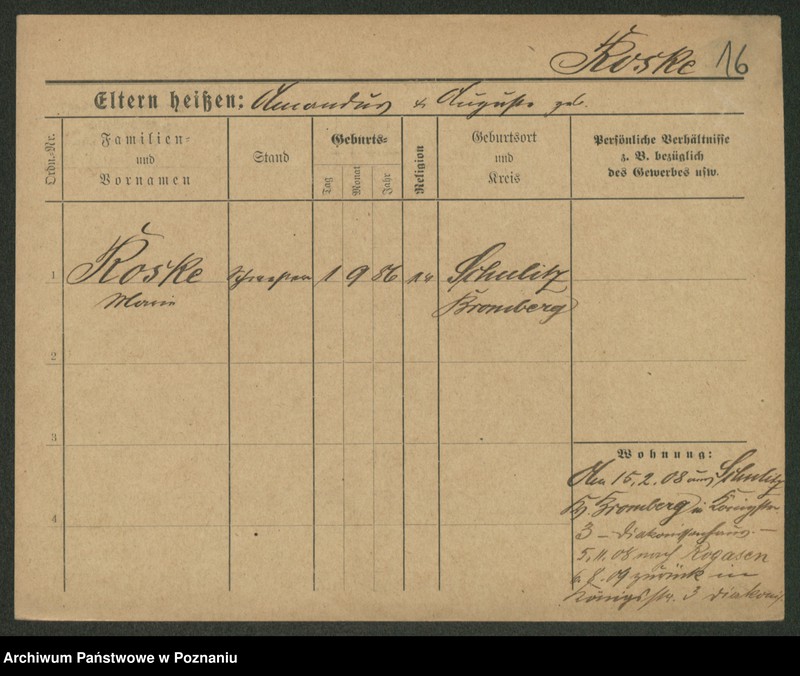 Roske 16
Eltern heißen: Amandus & Auguste geb.
Ordn.-Nr.
Familien-
und
Vornamen
Stand
Geburts-
Tag
Monat
Jahr
Religion
Geburtsort
und
Kreis
Persönliche Verhältnisse
z. B. bezüglich
des Gewerbes usw.
1 Roske 1 9 86 Schulitz
Marie Bromberg
2
3
4
Wohnung:
Am 15.2.08 aus Schulitz
Kr. Bromberg in Königstr.
3 – Diakonissenhaus. –
5.11.08 nach Rogasen
09 zurück in
Königsstr. 3 Diakoniss.
Archiwum Państwowe w Poznaniu